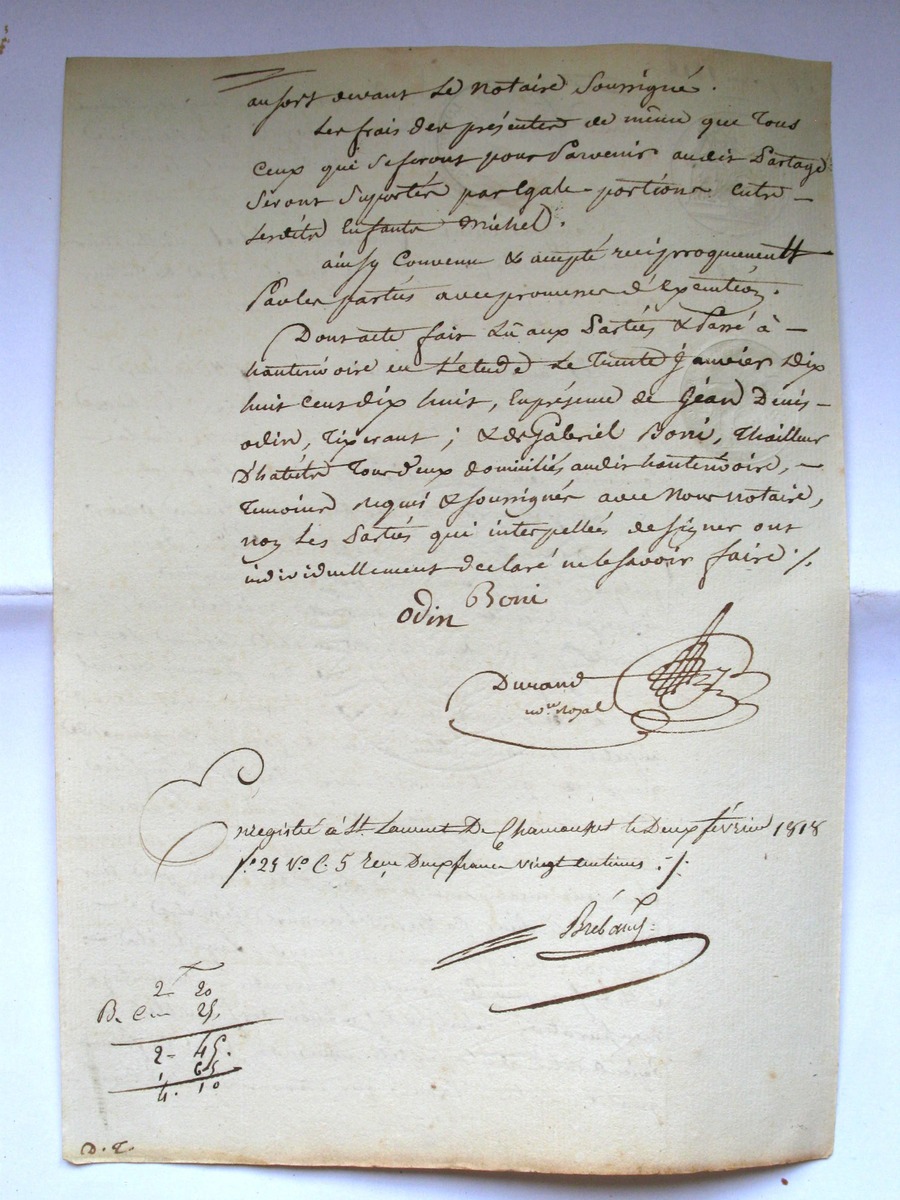 au sort devant Le notaire Soussigné.
Les frais des présentes de même que Tous
Ceux qui se feront pour Parvenir audit Partage
Seront Suportés par Egale portions entre
lesdits Enfants Michel.
ainsy Convenu & accepté reciproquement
Par les parties avec promesses d'Execution.
Dont acte fait Lû aux Parties & Passé à
hauterivoire en L'etude Le Trente Janvier Dix
huit Cent dix huit, En présence de Jean Denis
odin, Tixerant ; & de Gabriel Boni, Thailleur
D'habits Tous deux domiciliés audit hauterivoire,
Temoins requis & soussignés avec Nous notaire,
non Les Parties qui interpellées de signer ont
individuellement declaré ne le savoir faire ./.
odin Boni
Durand
no.re Royal
Enregistré à St. Laurent De Chamousset le Deux février 1818
fo. 25 Vo. C. 5 Reçu Deux francs vingt centimes ./.
2 20
25
2 - 45.
1 65
4. 10
D. T.